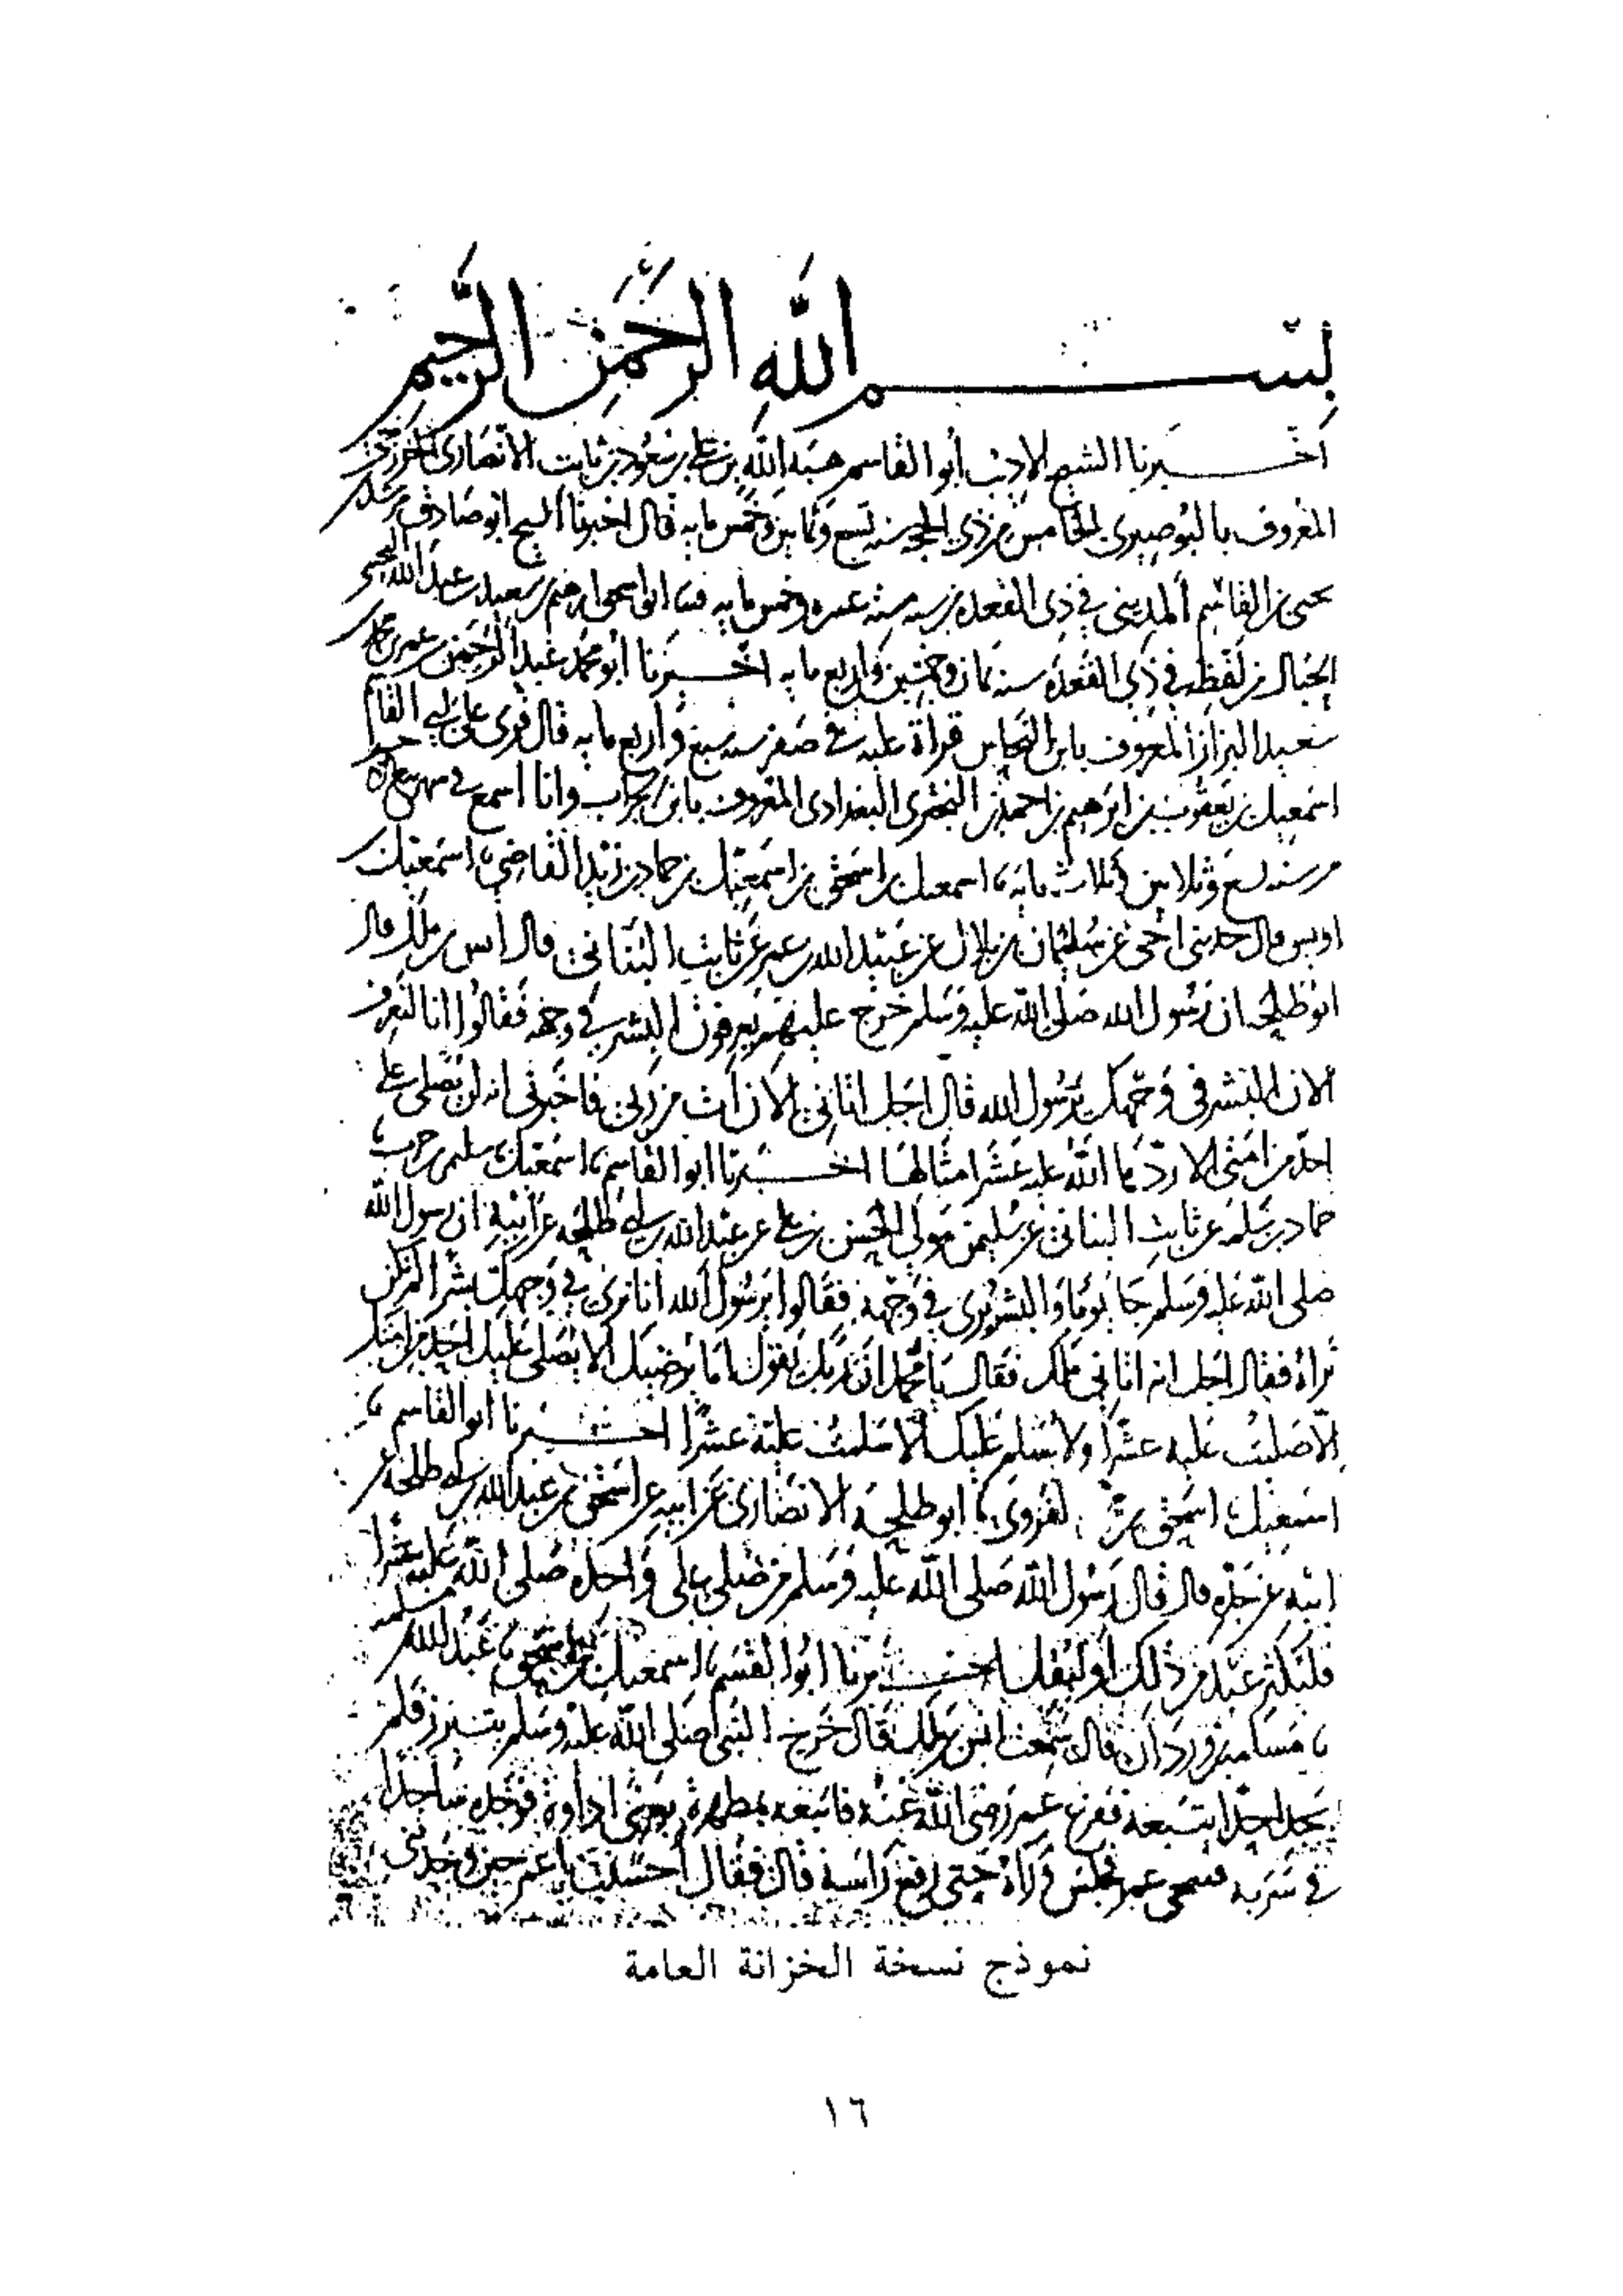 بسم الله الرحمن الرحيم
أخبرنا الشيخ الاديب أبو القاسم هبة الله بن علي بن مسعود بن ثابت الانصاري الخزرجي
المعروف بالبوصيري الخامس من ذي الحجة سنة تسع وثمانين وخمس مايه قال اخبرنا الشيخ ابو صادق مرشد بن
يحيى بن القاسم المديني في ذي القعدة من سنة ست عشره وخمس مايه ابو اسحق ابرهيم بن سعيد بن عبد الله
الحبال من لفظه في ذي القعدة سنة ثمان وخمسين واربع مايه اخبرنا ابو محمد عبد الرحمن بن عمر بن محمد بن
سعيد البزاز المعروف بابن النحاس قراة عليه في صفر سنة سبع واربع مايه قال قرئ على ابي القاسم
اسمعيل بن يعقوب بن ابرهيم بن احمد بن البختري البغدادي المعروف بابن الجراب وانا اسمع في شهر
من سنة تسع وثلاثين وثلاث مايه اسمعيل بن اسحق بن اسمعيل بن حماد بن زيد القاضي اسمعيل بن
اويس قال حدثني اخي عن سليمان بن بلال عن عبيد الله بن عمر عن ثابت البناني قال انس بن ملك قال
ابو طلحة ان رسول الله صلى الله عليه وسلم خرج عليهم يعرفون البشر في وجهه فقالوا انا لنعرف
الان البشر في وجهك يرسول الله قال اجل اتاني الان ات من ربي فاخبرني انه لن يصلي علي
احد من امتي الا ردها الله عليه عشر امثالها اخبرنا ابو القاسم اسمعيل سليمن بن حرب
حماد بن سلمة عن ثابت البناني عن سليمن مولى الحسن بن علي عن عبد الله بن ابي طلحة عن ابيه ان رسول الله
صلى الله عليه وسلم جا يوما والبشر يرى في وجهه فقالوا يرسول الله انا نرى في وجهك بشرا لم نكن
نراه فقال اجل انه اتاني ملك فقال يا محمد ان ربك يقول اما يرضيك الا يصلي عليك احد من امتك
الا صليت عليه عشرا ولا يسلم عليك الا سلمت عليه عشرا اخبرنا ابو القاسم
اسمعيل اسحق بن الفروي ابو طلحة الانصاري عن ابيه عن اسحق بن عبد الله بن ابي طلحة عن
ابيه عن جده قال قال رسول الله صلى الله عليه وسلم من صلى علي واحدة صلى الله عليه عشرا
فليكثر عبد من ذلك او ليقل اخبرنا ابو القسم اسمعيل بن اسحق عبد الله بن مسلمة
مسلمة بن وردان قال سمعت انس بن ملك قال خرج النبي صلى الله عليه وسلم يتبرز فلم
يجد احدا يتبعه ففزع عمر رضي الله عنه فاتبعه بمطهرة يعني اداوة فوجده ساجدا
في شربه فتنحى عمر فجلس وراه حتى رفع راسه قال فقال احسنت يا عمر حين وجدتني
نموذج نسخة الخزانة العامة
١٦